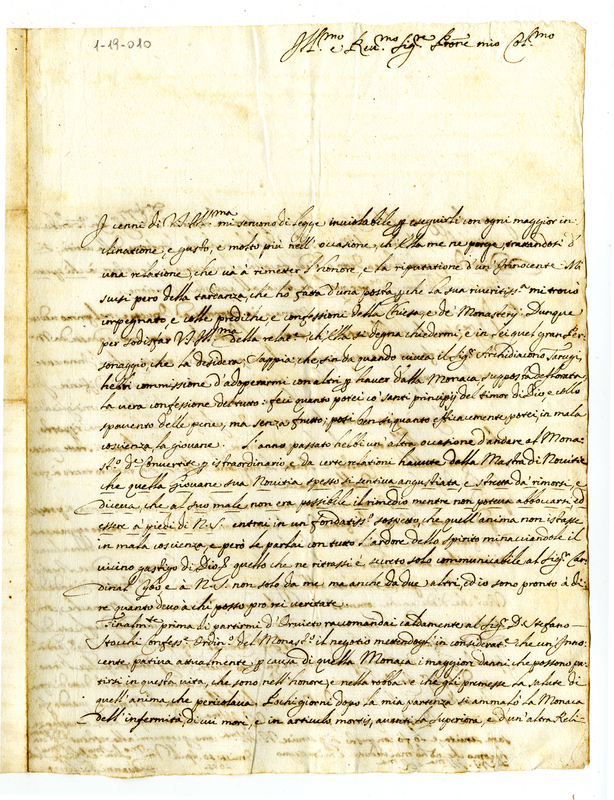 1-19-010
Ill.mo e Reu.mo Sig.re Prone mio Col.mo
I cenni di V.S. Ill.ma mi seruono di legge inuiolabile p eseguirli con ogni maggior in-
clinatione, e gusto, e molto più nell'occasione, ch'Ella me ne porge, trattandosi d'
una relatione, che uà à rimetter l'honore, e la riputatione d'un'Innocente. Mi
scusi però della tardanza, che hò fatta d'una posta, p che la sua riueritiss.a mi trouò
impegnato, e colle prediche, e confessioni della Chiesa, e de' Monasterij. Dunque
per sodisfar V.S. Ill.ma della relat.e ch'Ella si degna chiedermi, e in lei quel gran Per-
sonaggio, che la desidera, Sappia che, sin da quando uiueua il Sig.r Archidiacono
hebbi commissione d'adoperarmi con altri p hauer dalla Monaca, supposta deflorata
la uera confessione del tutto: feci quanto potei co' santi principij del timor di Dio, e collo
spauento delle pene, ma senza frutto, poi quanto efficacemente potei, in mala
coscienza la giouane. L'anno passato hebbi un'altra occasione d'andare al Mona-
st.o d.e Conuertite p istraordinario, e da certe relationi hauute dalla Mastra di Nouitie
che quella giouane sua Nouitia spesso si sentiua angustiata, e stretta da' rimorsi, e
diceua che al suo male non era possibile il rimedio mentre non poteua abboccarsi ed
essere a' piedi di N.S. entrai in un fondatiss.o sospetto, che quell'anima non istasse
in mala coscienza, e però le parlai con tutto l'ardore dello spirito minacciandole il
uicino gastigo di Dio, e quello che ne ritrassi è secreto solo communicabile al Sig.r Car-
dinal e à N.S. non solo da me, ma anche da due altri, ed io sono pronto à di-
re quanto deuo à che posso pro rei ueritate.
Finalm.te prima di partirmi d'Oruieto raccomandai caldamente al Sig.r D. Stefano
Stocchi Confess.re Ordin.o del Monast.o il negotio mettendogli in considerat.e che un'Inno-
cente, patiua attualmente, p causa di quella Monaca i maggiori danni che possono pa-
tirsi in questa uita, che sono nell'honore, e nella robba e che gli premesse la salute di
quell'anima che pericolaua. Pochi giorni dopo la mia partenza si ammalò la Monaca
dell'infermità, di cui morì, e in articulo mortis, auanti la Superiora, e d'un'altra Reli-